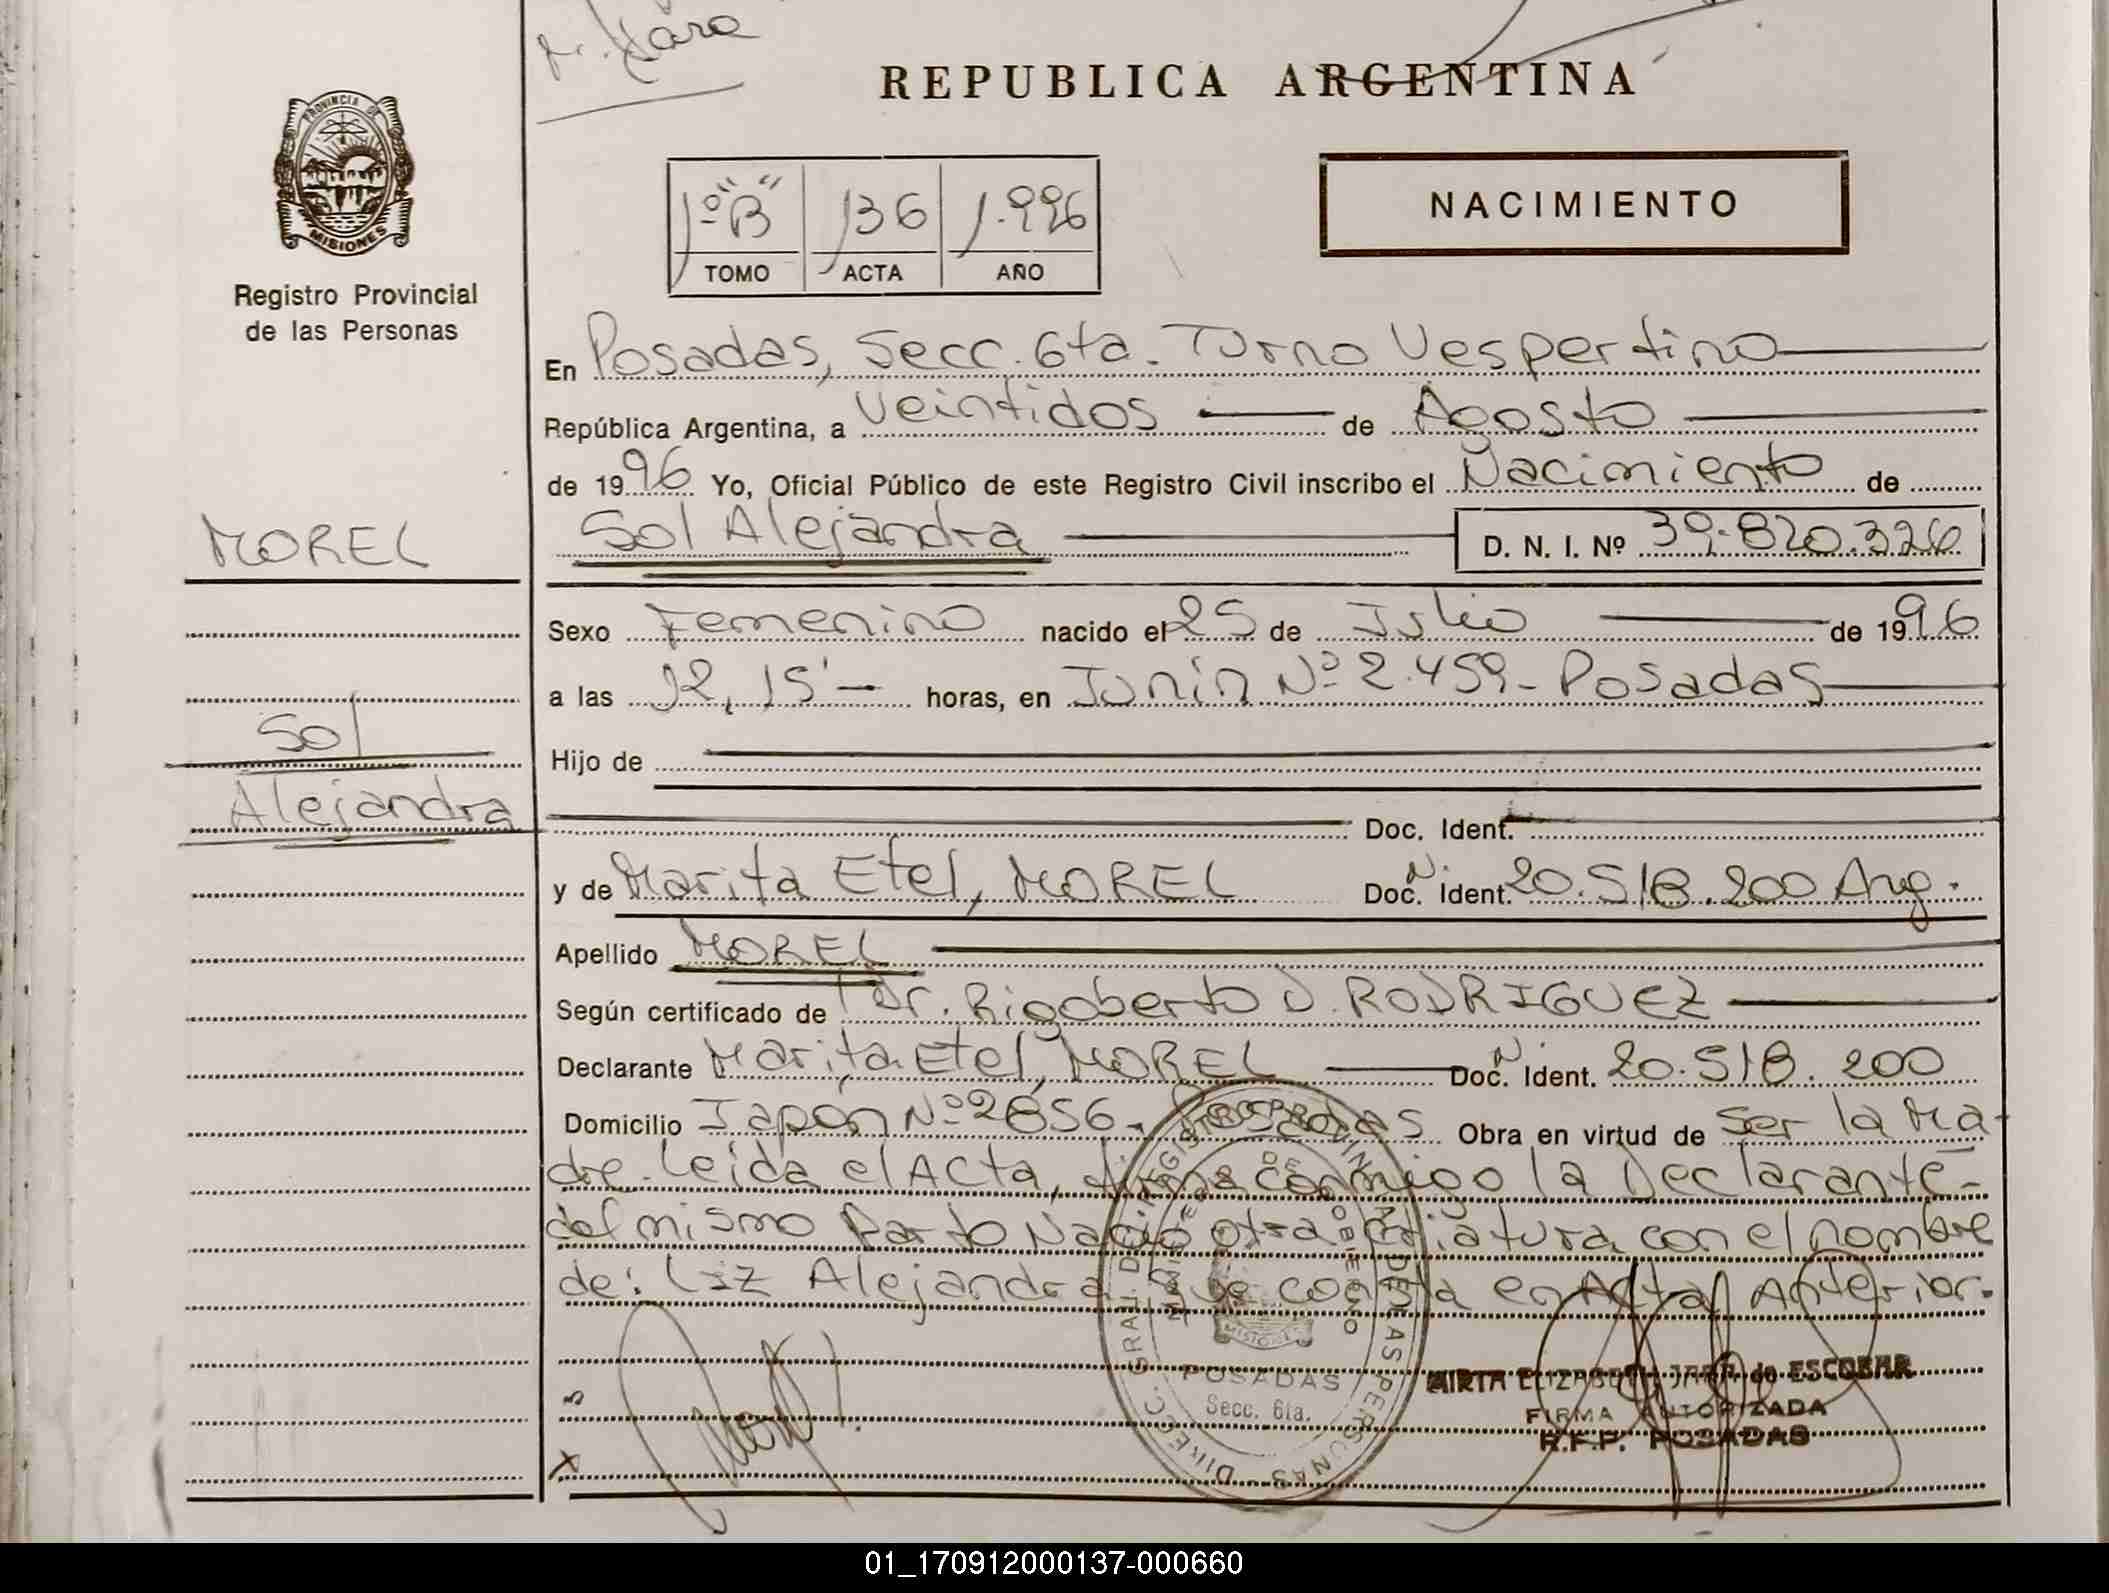 M. Jara
REPUBLICA ARGENTINA
PROVINCIA DE
MISIONES
Registro Provincial
de las Personas
1º "B" 136 1.996
TOMO ACTA AÑO
NACIMIENTO
En Posadas, Secc. 6ta. Turno Vespertino
República Argentina, a veintidos de Agosto
de 1996 Yo, Oficial Público de este Registro Civil inscribo el Nacimiento de
Sol Alejandra D. N. I. Nº 39.820.326
MOREL
Sexo Femenino nacido el 25 de Julio de 1996
a las 12,15' horas, en Junín Nº 2.459 - Posadas
Sol
Alejandra
Hijo de
Doc. Ident.
y de Marita Etel, MOREL Doc. N. Ident. 20.518.200 Arg.
Apellido MOREL
Según certificado de Dr. Rigoberto D. RODRIGUEZ
Declarante Marita Etel, MOREL Doc. N. Ident. 20.518.200
Domicilio Japón Nº 2856 - Posadas Obra en virtud de ser la Ma-
dre. Leída el Acta, firma conmigo la Declarante-
del mismo Parto Nació otra criatura con el nombre
de: Liz Alejandra que consta en Acta Anterior.
POSADAS
Secc. 6ta.
MIRTA ELIZABETH JARA de ESCOBAR
FIRMA AUTORIZADA
R.P.P. POSADAS
01_170912000137-000660